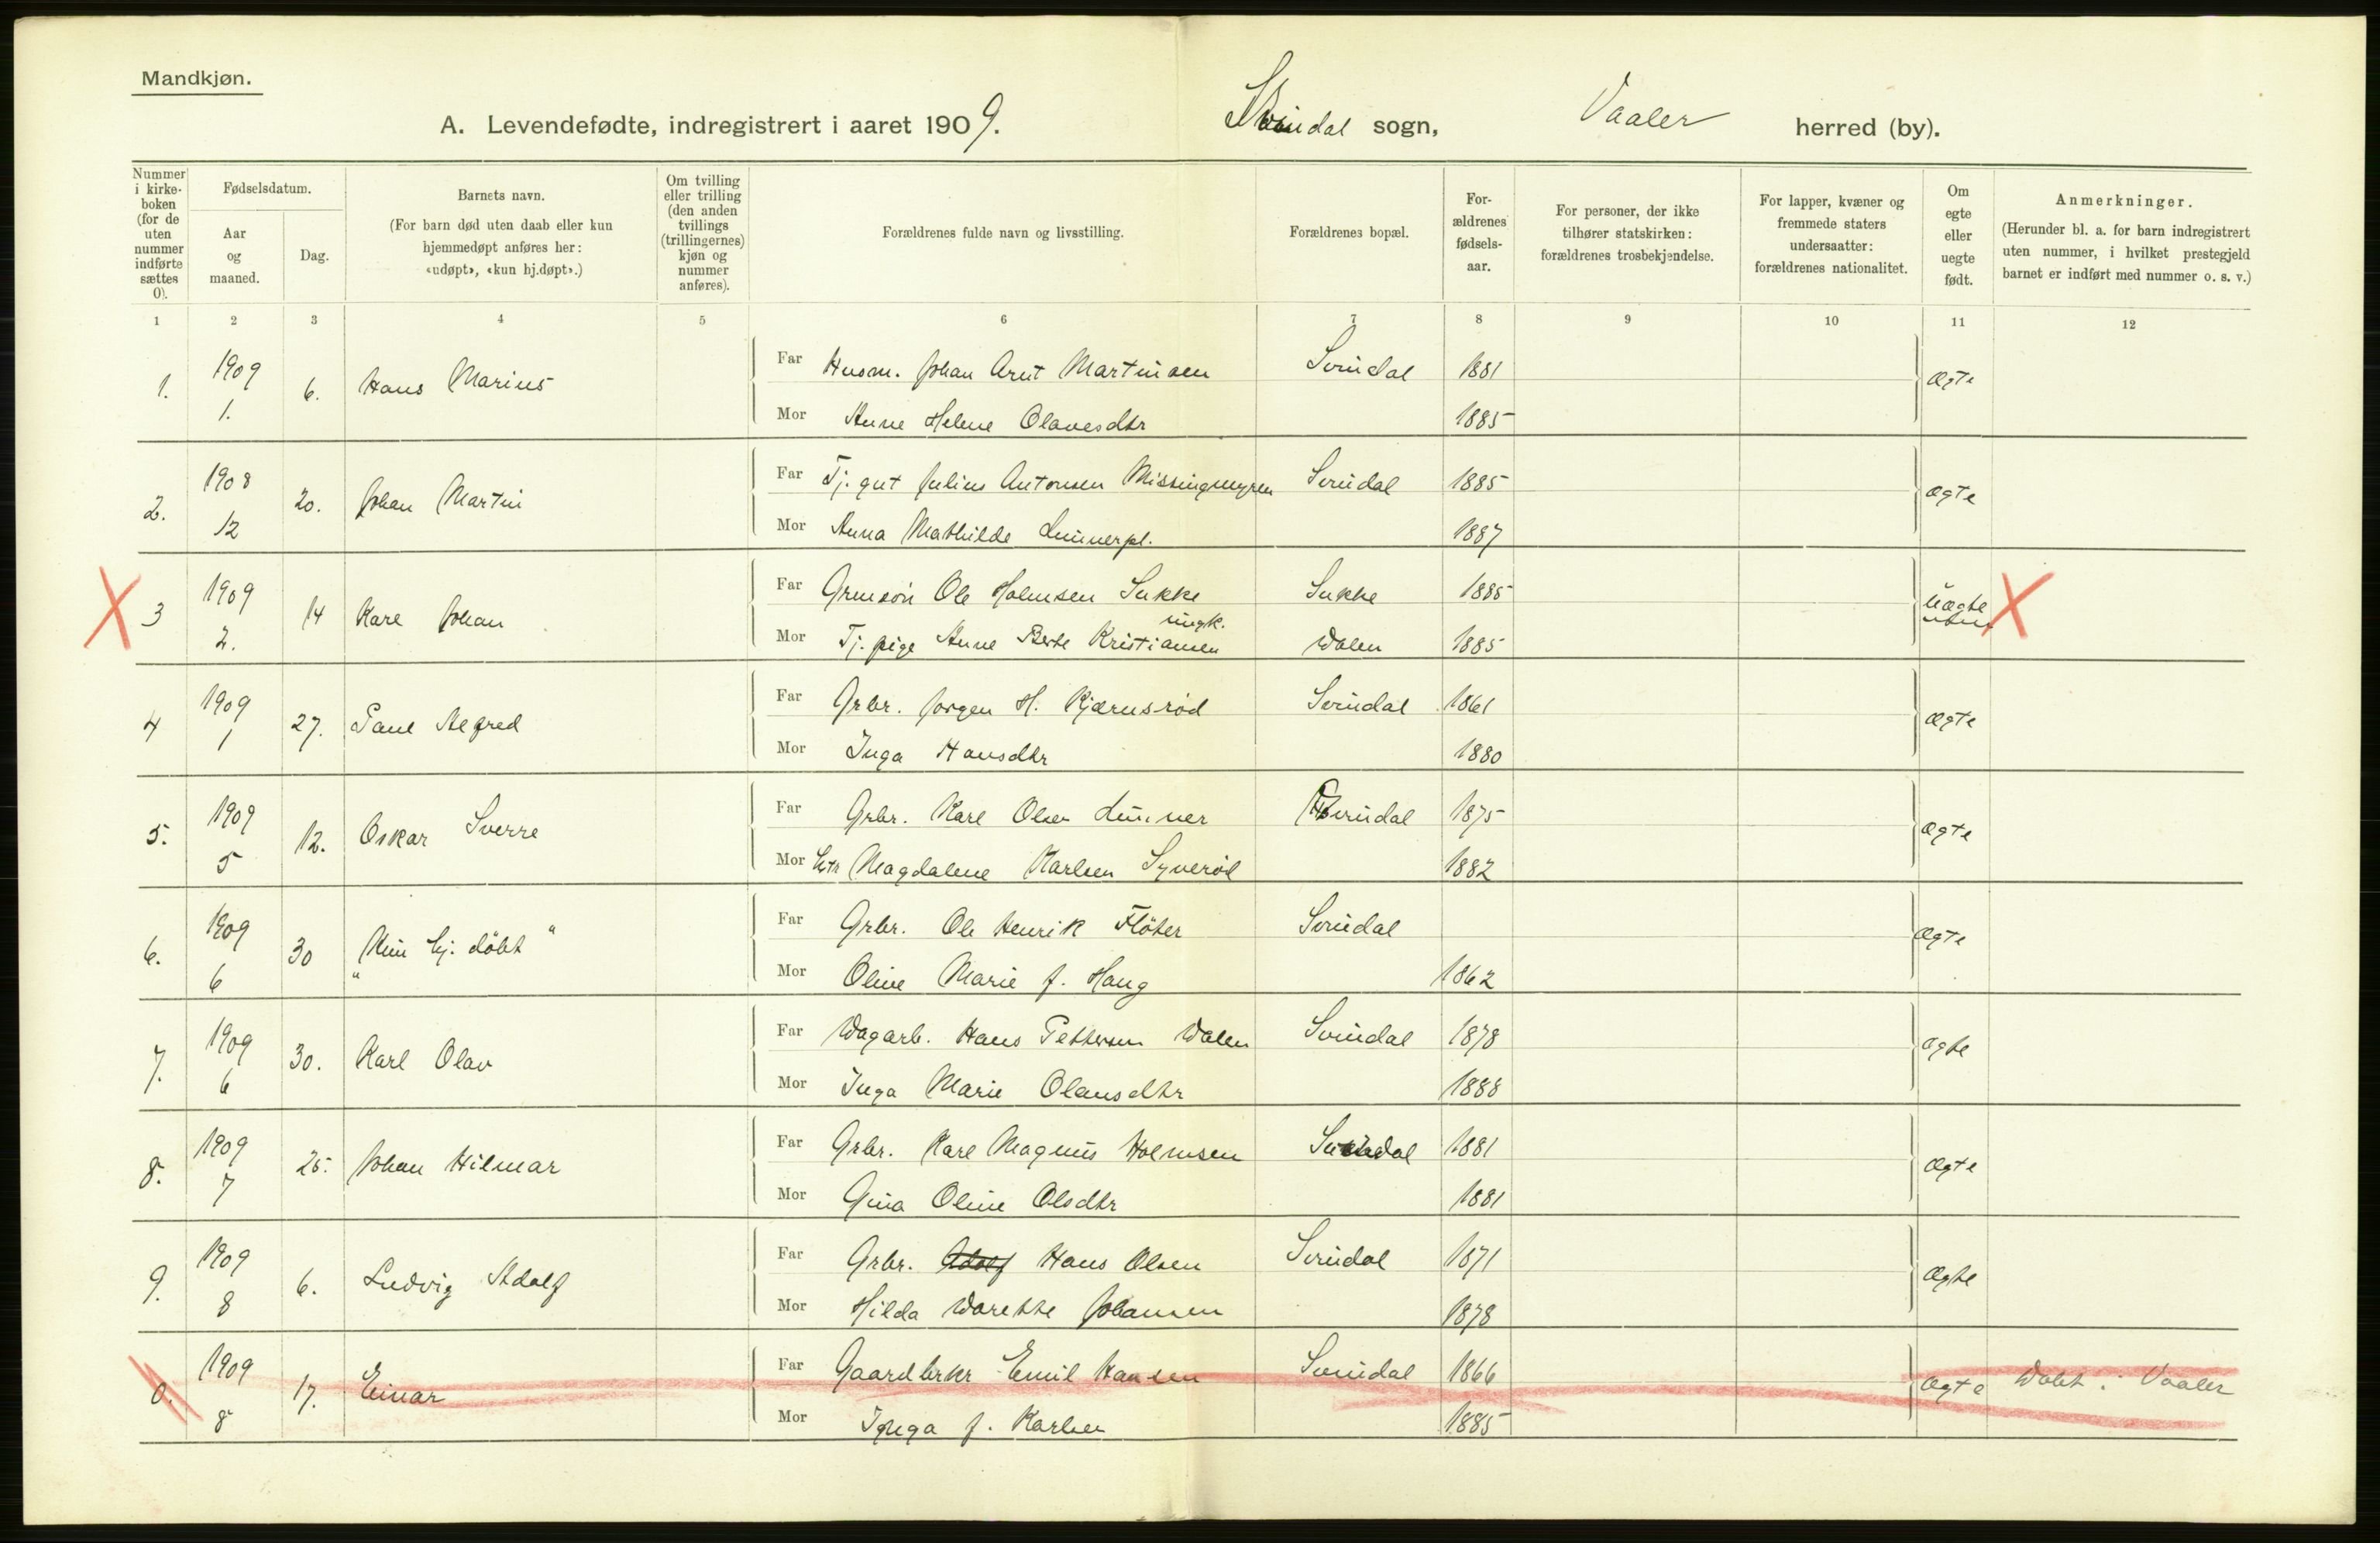 Mandkjøn.
A. Levendefødte, indregistrert i aaret 1909. Svindal sogn, Vaaler herred (by).
Nummer i kirke-boken (for de uten nummer indførte sættes 0).
Fødselsdatum.
Aar og maaned.
Dag.
Barnets navn.
(For barn død uten daab eller kun hjemmedøpt anføres her: «udøpt», «kun hj.døpt».)
Om tvilling eller trilling (den anden tvillings (trillingernes) kjøn og nummer anføres).
Forældrenes fulde navn og livsstilling.
Forældrenes bopæl.
For-ældrenes fødsels-aar.
For personer, der ikke tilhører statskirken: forældrenes trosbekjendelse.
For lapper, kvæner og fremmede staters undersaatter: forældrenes nationalitet.
Om egte eller uegte født.
Anmerkninger.
(Herunder bl. a. for barn indregistrert uten nummer, i hvilket prestegjeld barnet er indført med nummer o. s. v.)
1 2 3 4 5 6 7 8 9 10 11 12
1. 1909 1. 6. Hans Marius Far Husm. Johan Arnt Martinsen Svindal 1881 Ægte
Mor Anne Helene Olavesdtr 1885
2. 1908 12 20. Johan Martin Far Tj. gut Julius Antonsen Missingmyren Svindal 1885 Ægte
Mor Anna Mathilde Linnerpl. 1887
X 3 1909 2. 14 Karl Johan Far Grmsön Ole Holmsen Sukke Sukke 1885 Uægte X
Mor Tj. pige Anne Berte Kristiansen ungk. Dalen 1885
4 1909 1 27. Paul Alfred Far Grbr. Jørgen H. Kjærnsrød Svindal 1861 Ægte
Mor Inga Hansdtr 1880
5. 1909 5 12. Oskar Sverre Far Grbr. Karl Olsen Linner Svindal 1875 Ægte
Mor Magdalene Karlsen Syverød 1882
6. 1909 6 30 "Kun hj. döbt" Far Grbr. Ole Henrik Flöter Svindal Ægte
Mor Oline Marie f. Haug 1862
7. 1909 6 30. Karl Olav Far Dagarb. Hans Pettersen Dalen Svindal 1878 Ægte
Mor Inga Marie Olausdtr 1888
8. 1909 7 25. Johan Hilmar Far Grbr. Karl Magnus Holmsen Svindal 1881 Ægte
Mor Gina Oline Olsdtr 1881
9. 1909 8 6. Ludvig Adolf Far Grbr. Adolf Hans Olsen Svindal 1871 Ægte
Mor Hilda Dorethe Johansen 1878
0. 1909 8 17. Einar Far Gaardbrkr Emil Hansen Svindal 1866 Ægte Döbt i Vaaler
Mor Inga f. Karlsen 1885